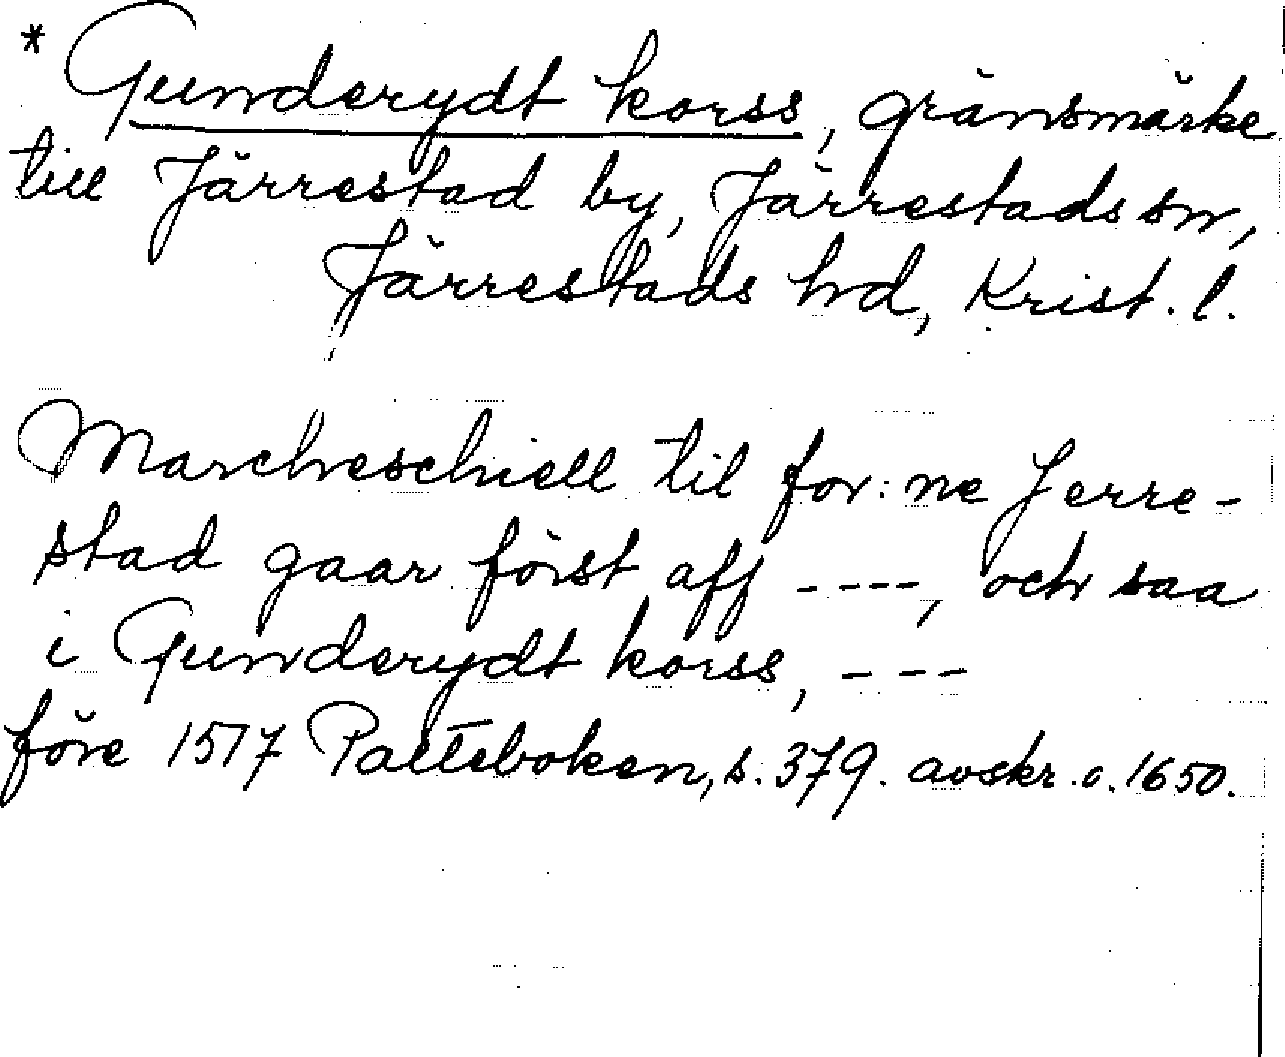 * Gunderydt korss, gränsmärke
till Järrestad by, Järrestads sn,
Järrestads hd, Krist. l.
Marcheschiell til for: ne Jerre-
stad gaar först aff ----, och saa
i Gunderydt korss, ---
före 1517 Palteboken, s. 379. avskr. c. 1650.